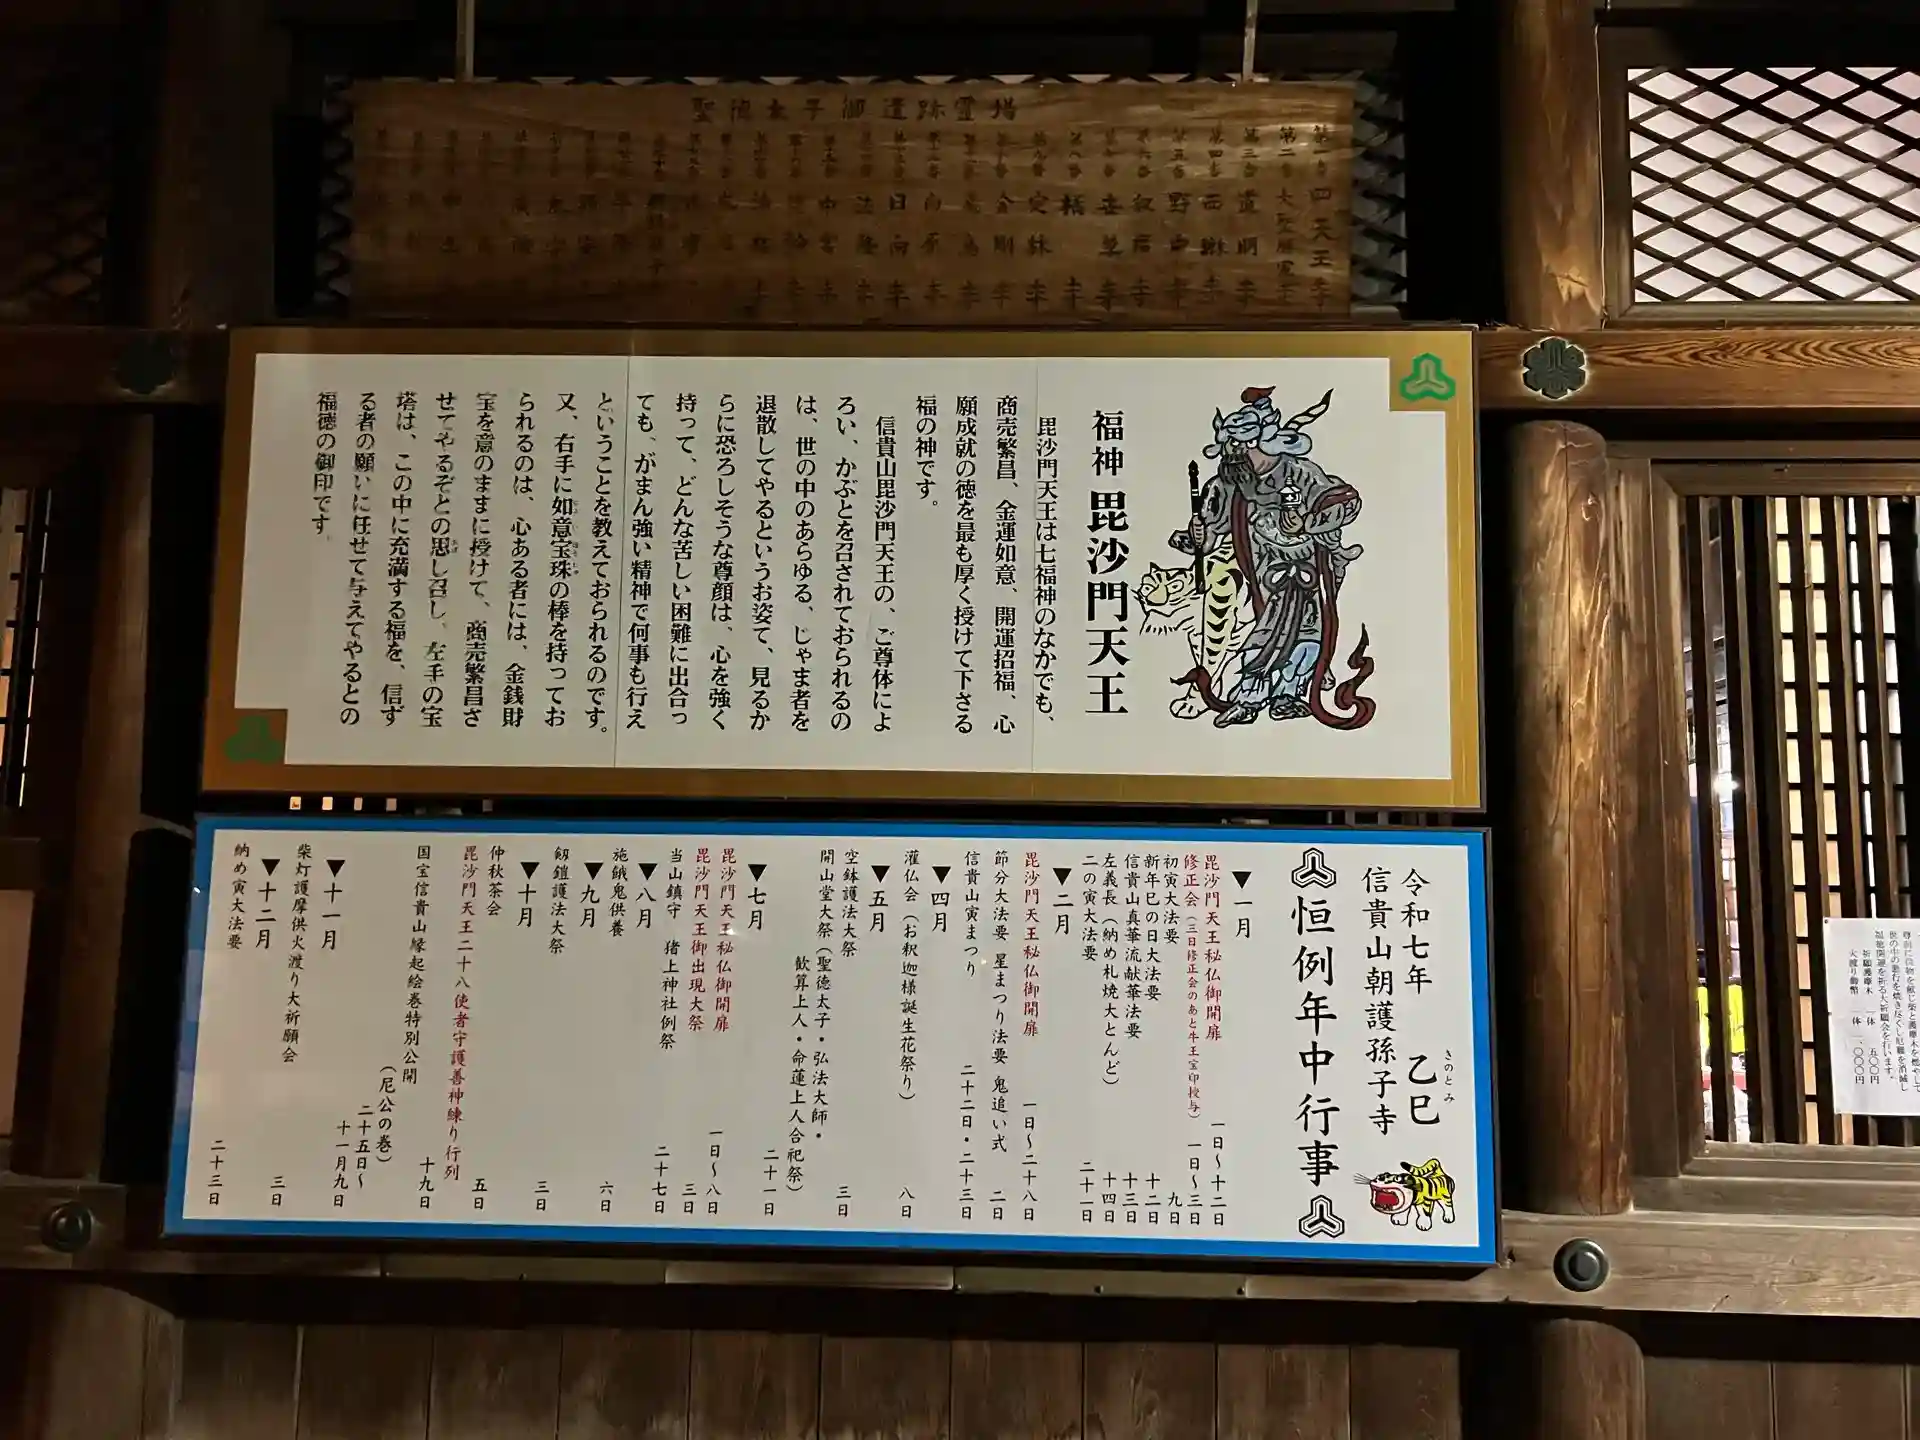 聖徳太子御遺跡霊場
第一番 四天王寺
第二番 大聖勝軍寺
第三番 道明寺
第四番 西琳寺
第五番 野中寺
第六番 叡福寺
第七番 世尊寺
第八番 橘寺
第九番 定林寺
金剛寺
日向寺
中宮寺
福神 毘沙門天王
毘沙門天王は七福神のなかでも、
商売繁昌、金運如意、開運招福、心
願成就の徳を最も厚く授けて下さる
福の神です。
信貴山毘沙門天王の、ご尊体によ
ろい、かぶとを召されておられるの
は、世の中のあらゆる、じゃま者を
退散してやるというお姿て、見るか
らに恐ろしそうな尊顔は、心を強く
持って、どんな苦しい困難に出合っ
ても、がまん強い精神で何事も行え
ということを教えておられるのです。
又、右手に如意宝珠の棒を持ってお
られるのは、心ある者には、金銭財
宝を意のままに授けて、商売繁昌さ
せてやるぞとの思し召し、左手の宝
塔は、この中に充満する福を、信ず
る者の願いに任せて与えてやるとの
福徳の御印です。
令和七年 乙巳
きのとみ
信貴山朝護孫子寺
恒例年中行事
▼一月
毘沙門天王秘仏御開扉 一日〜十二日
修正会(三日修正会のあと牛王宝印授与) 一日〜三日
初寅大法要 九日
新年巳の日大法要 十二日
信貴山真華流献華法要 十三日
左義長(納め札焼大とんど) 十四日
二の寅大法要 二十一日
▼二月
毘沙門天王秘仏御開扉 一日〜二十八日
節分大法要 星まつり法要 鬼追い式 二日
信貴山寅まつり 二十二日・二十三日
▼四月
灌仏会(お釈迦様誕生花祭り) 八日
▼五月
空鉢護法大祭 三日
開山堂大祭(聖徳太子・弘法大師・
歓算上人・命蓮上人合祀祭) 二十一日
▼七月
毘沙門天王秘仏御開扉 一日〜八日
毘沙門天王御出現大祭 三日
当山鎮守 猪上神社例祭 二十七日
▼八月
施餓鬼供養 六日
▼九月
剱鎧護法大祭 三日
▼十月
仲秋茶会 五日
毘沙門天王二十八使者守護善神練り行列 十九日
国宝信貴山縁起絵巻特別公開
(尼公の巻)
二十五日〜
十一月九日
▼十一月
柴灯護摩供火渡り大祈願会 三日
▼十二月
納め寅大法要 二十三日
祈願護摩木 一体 五〇〇円
火渡り御幣 一体 一、〇〇〇円